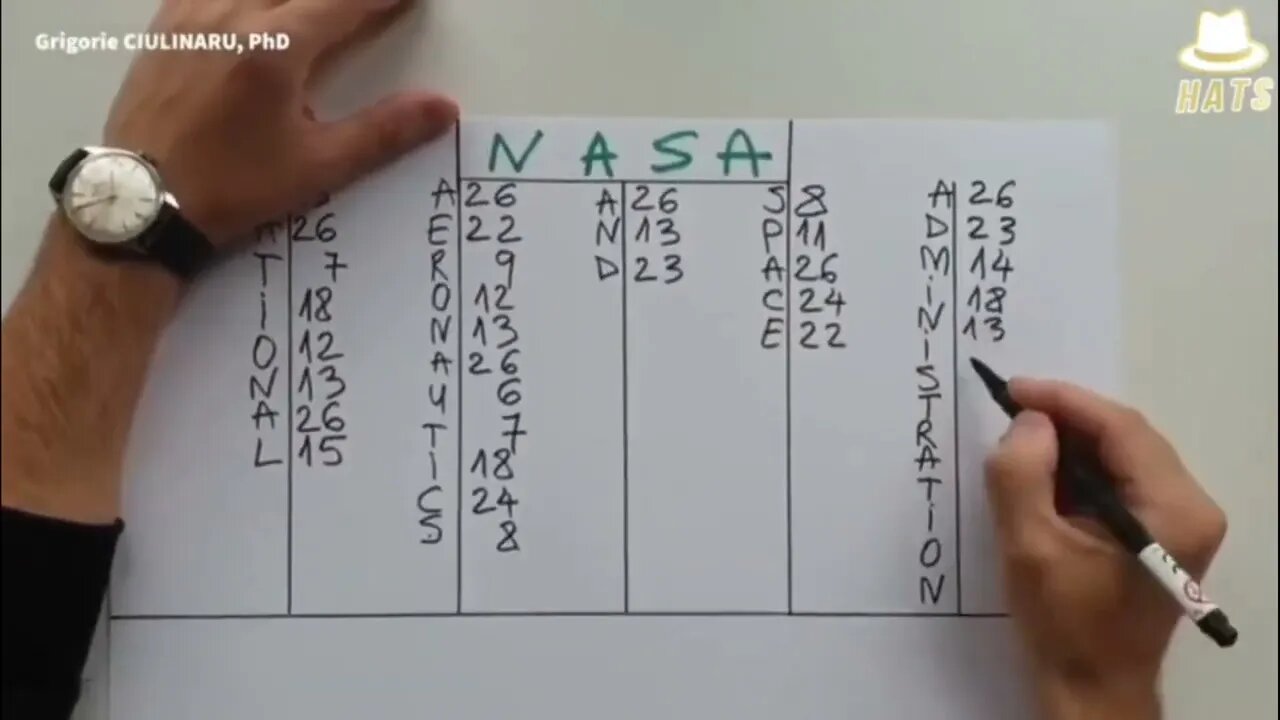 Grigorie CIULINARU, PhD
HATS
NASA
A 26
T 7
i 18
O 12
N 13
A 26
L 15
A 26
E 22
R 9
O 12
N 13
A 26
U 6
T 7
I 18
C 24
S 8
A 26
N 13
D 23
S 8
P 11
A 26
C 24
E 22
A 26
D 23
M 14
i 18
N 13
I
S
T
R
A
T
i
O
N